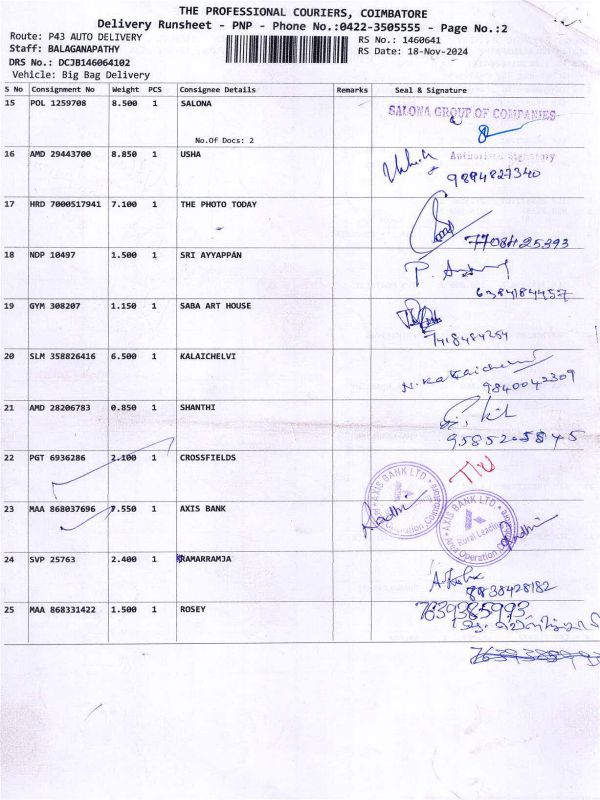 THE PROFESSIONAL COURIERS, COIMBATORE
Delivery Runsheet - PNP - Phone No.:0422-3505555 - Page No.:2
Route: P43 AUTO DELIVERY RS No.: 1460641
Staff: BALAGANAPATHY RS Date: 18-Nov-2024
DRS No.: DCJB146064102
Vehicle: Big Bag Delivery
S No Consignment No Weight PCS Consignee Details Remarks Seal & Signature
15 POL 1259708 8.500 1 SALONA
SALONA GROUP OF COMPANIES
No.Of Docs: 2
16 AMD 29443700 8.850 1 USHA
Authorised Signatory
9894827340
17 HRD 7000517941 7.100 1 THE PHOTO TODAY
18 NDP 10497 1.500 1 SRI AYYAPPAN
6384184457
19 GYM 308207 1.150 1 SABA ART HOUSE
7418484254
20 SLM 358826416 6.500 1 KALAICHELVI
9840042309
21 AMD 28206783 0.850 1 SHANTHI
9585205845
22 PGT 6936286 2.100 1 CROSSFIELDS
AXIS BANK LTD
23 MAA 868037696 7.550 1 AXIS BANK
Radhi
AXIS BANK LTD.
Rural Lending
Area Operation
Radhi
24 SVP 25763 2.400 1 RAMARRAMJA
8838428182
25 MAA 868331422 1.500 1 ROSEY
7639385993
7639385993